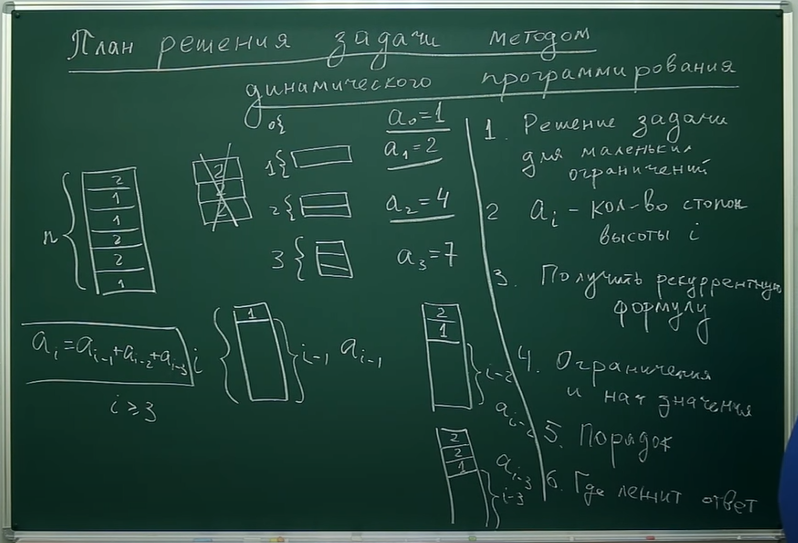 План решения задачи методом
динамического программирования
0{
a₀=1
1{
a₁=2
2{
a₂=4
3{
a₃=7
n{
2
1
1
2
2
1
2
2
2
aᵢ=aᵢ₋₁+aᵢ₋₂+aᵢ₋₃
i≥3
i{
1
}i-1 aᵢ₋₁
2
1
}i-2
aᵢ₋₂
2
2
1
aᵢ₋₃
}i-3
1. Решение задачи
для маленьких
ограничений
2 aᵢ - кол-во стопок
высоты i
3. Получить рекуррентную
формулу
4. Ограничения
и нач значения
5. Порядок
6. Где лежит ответ